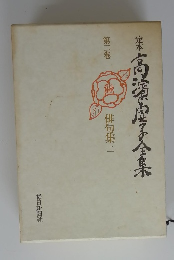 定本 高濱虚子全集
第二巻
俳句集二
毎日新聞社